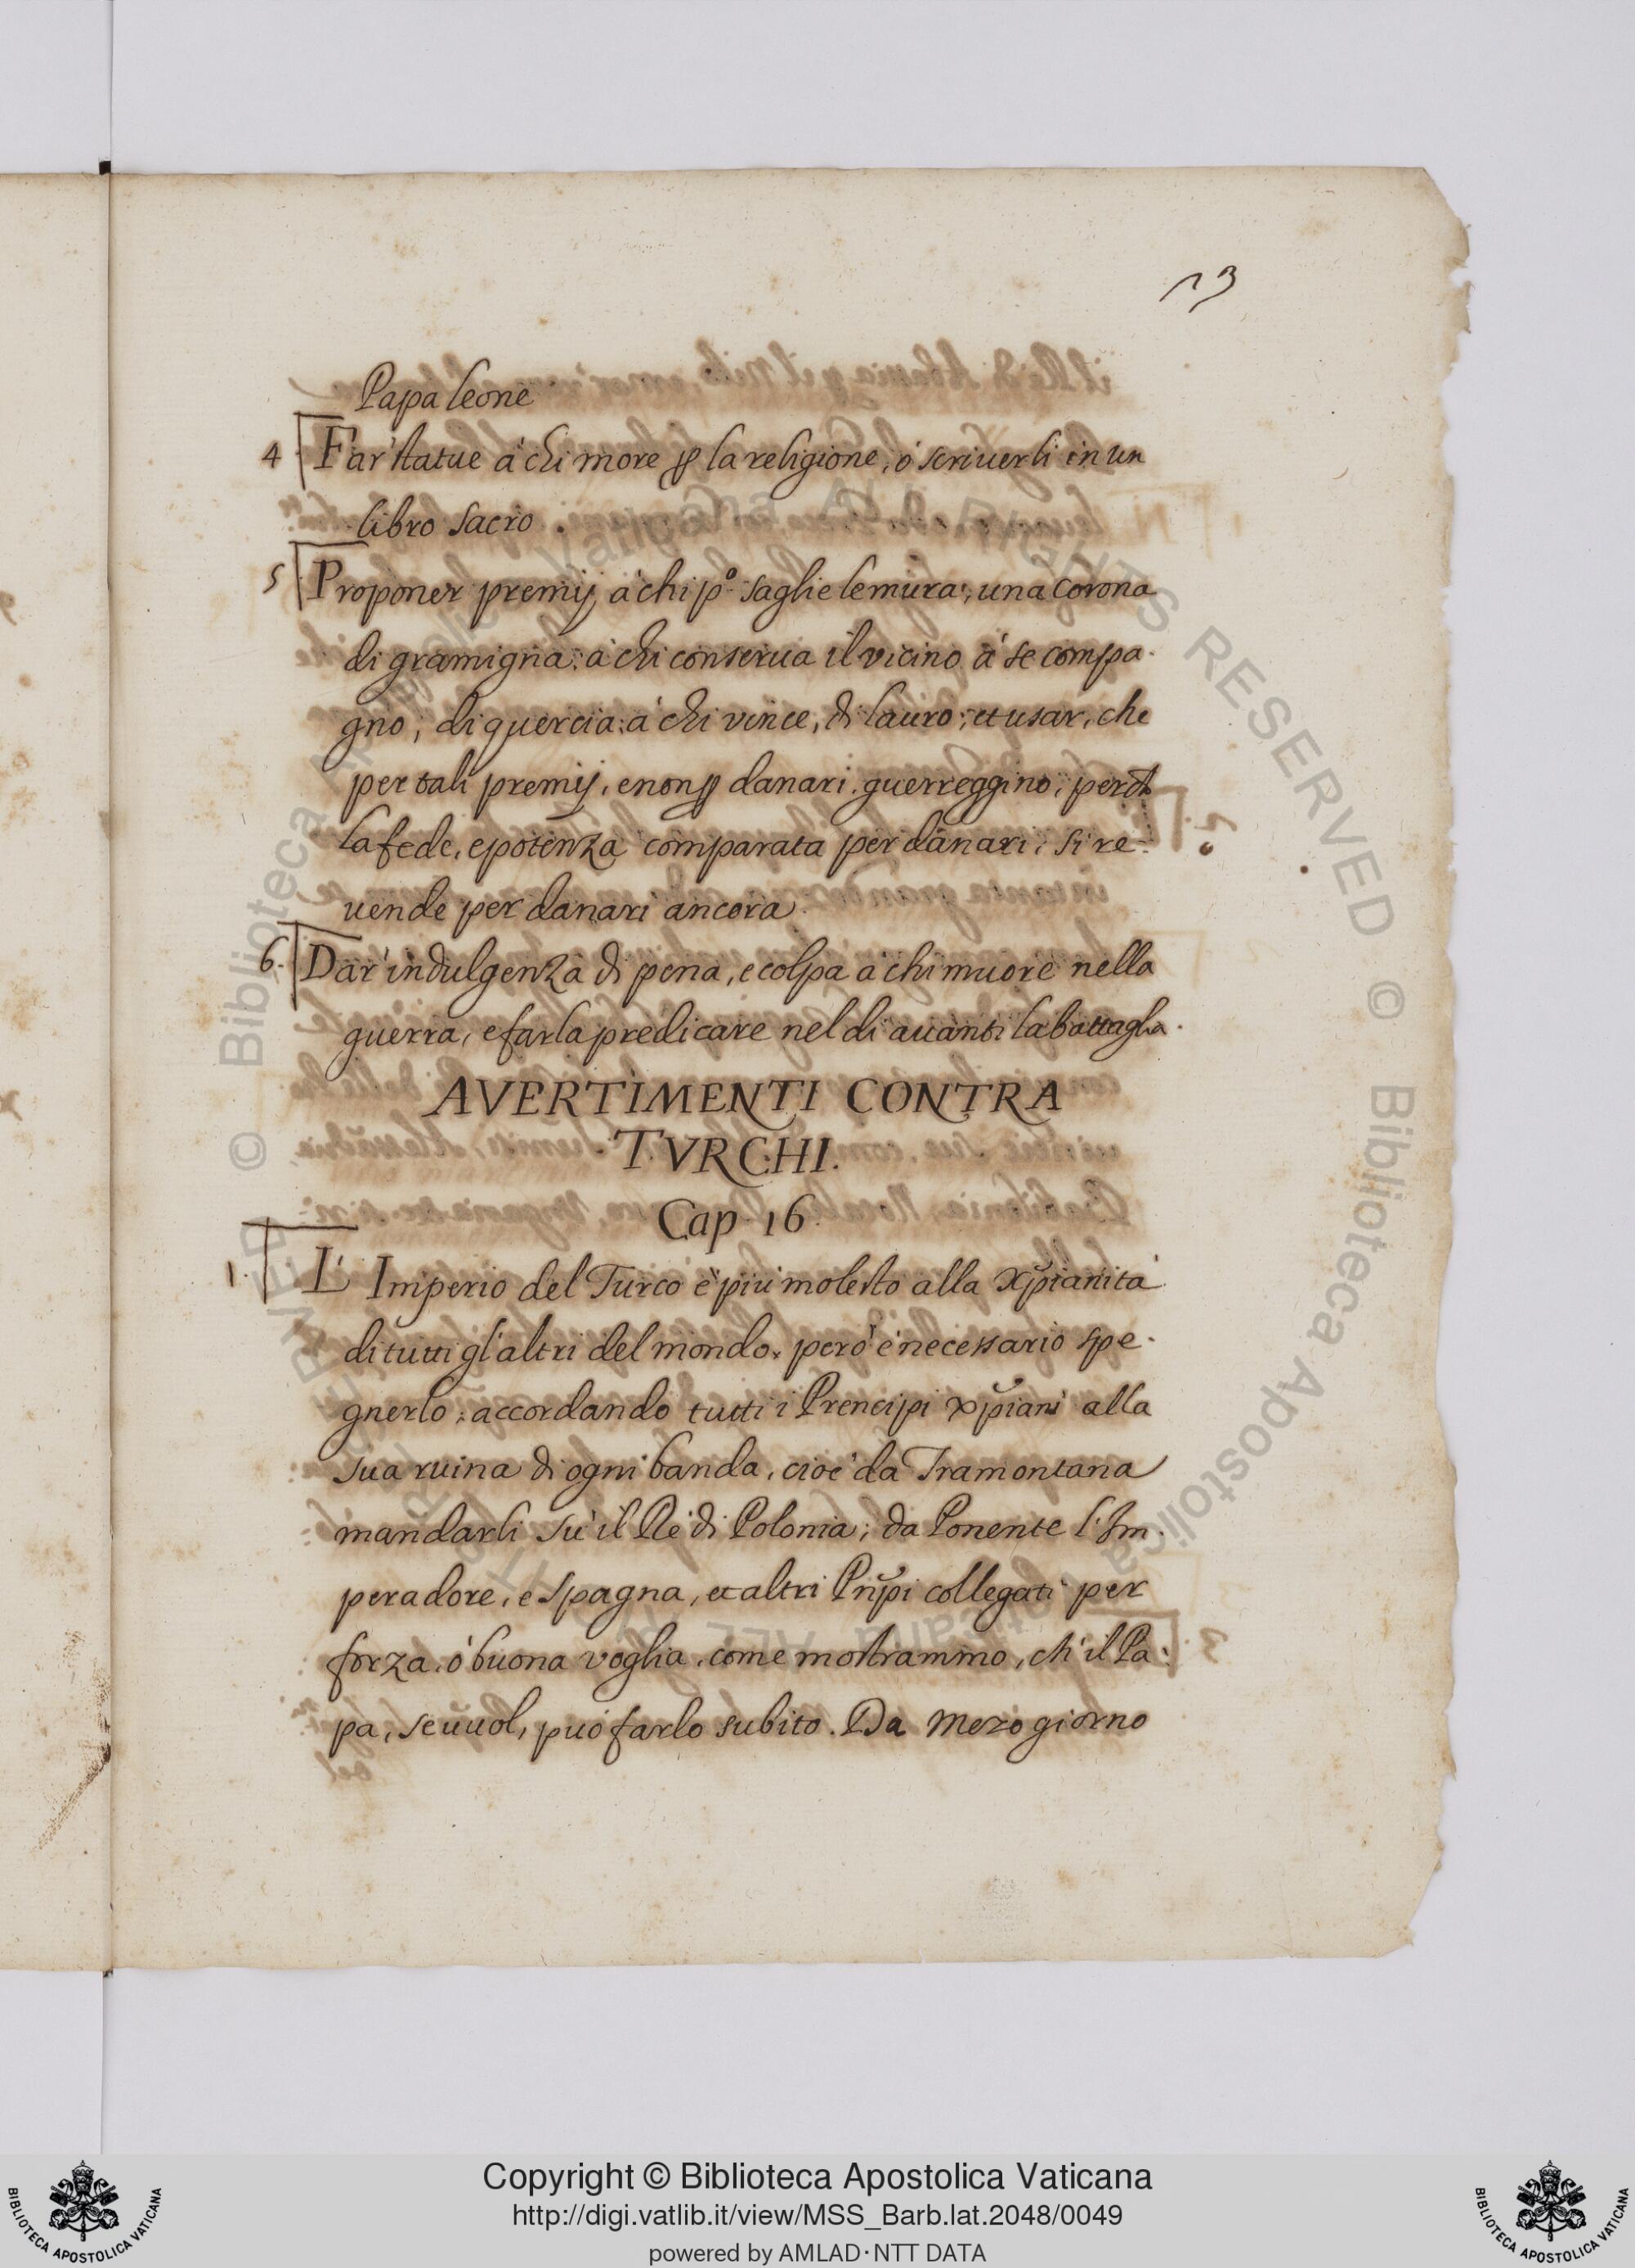 13
Papa leone
4 Far' statue à chi more ꝑ la religione, ò scriuerli in un
libro sacro.
5 Proponer premij à chi pº saglie le mura, una corona
di gramigna: à chi conserua il vicino à se compa-
gno, di quercia: à chi vince, di lauro; et usar, che
per tali premij, e non ꝑ danari guerreggino;
la fede, e potenza comparata per danari, si re-
uende per danari ancora.
6. Dar' indulgenza di pena, e colpa à chi muore nella
guerra, e farla predicare nel di auanti la battaglia.
AVERTIMENTI CONTRA
TVRCHI.
Cap 16.
1. L' Imperio del Turco è più molesto alla xp̃ianità
di tutti gl'altri del mondo, però è necessario spe-
gnerlo; accordando tutti i Prencipi xp̃iani alla
sua ruina di ogni banda, cioè da Tramontana
mandarli sù il Rè di Polonia; da Ponente l'Im-
peradore, e Spagna, et altri Pñpi collegati per
forza, ò buona voglia, come mostrammo, ch'il Pa-
pa, se uuol, può farlo subito. Da Mezo giorno
© Biblioteca Apostolica Vaticana ALL RIGHTS RESERVED
© Biblioteca Apostolica Vaticana ALL RIGHTS RESERVED
Copyright © Biblioteca Apostolica Vaticana
http://digi.vatlib.it/view/MSS_Barb.lat.2048/0049
powered by AMLAD·NTT DATA
BIBLIOTECA APOSTOLICA VATICANA
BIBLIOTECA APOSTOLICA VATICANA